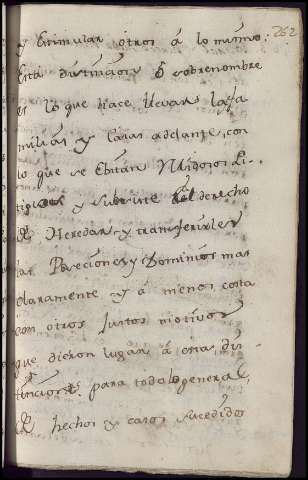 262
y Estimular otros á lo mismo.
Esta distincion, ó sobrenombre
es lo que hace llevar las fa
milias y casas adelante, con
lo que se Evitan Ruidosos li-
tigios y subsiste el derecho
de Heredar y transferirles
las Posesiones y Dominios mas
claramente y á menos costa
con otros justos motivos
que dieron lugar á esta dis-
tincion, para todo lo general,
de hechos y casos sucedidos